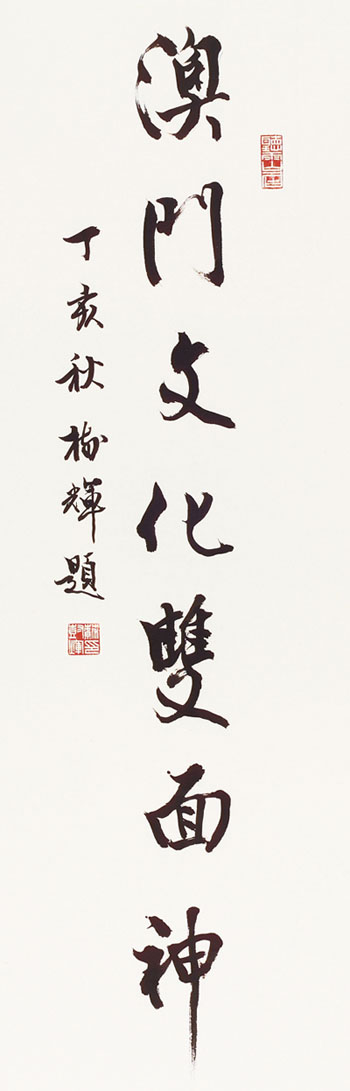 澳門文化雙面神
丁亥秋 輝題